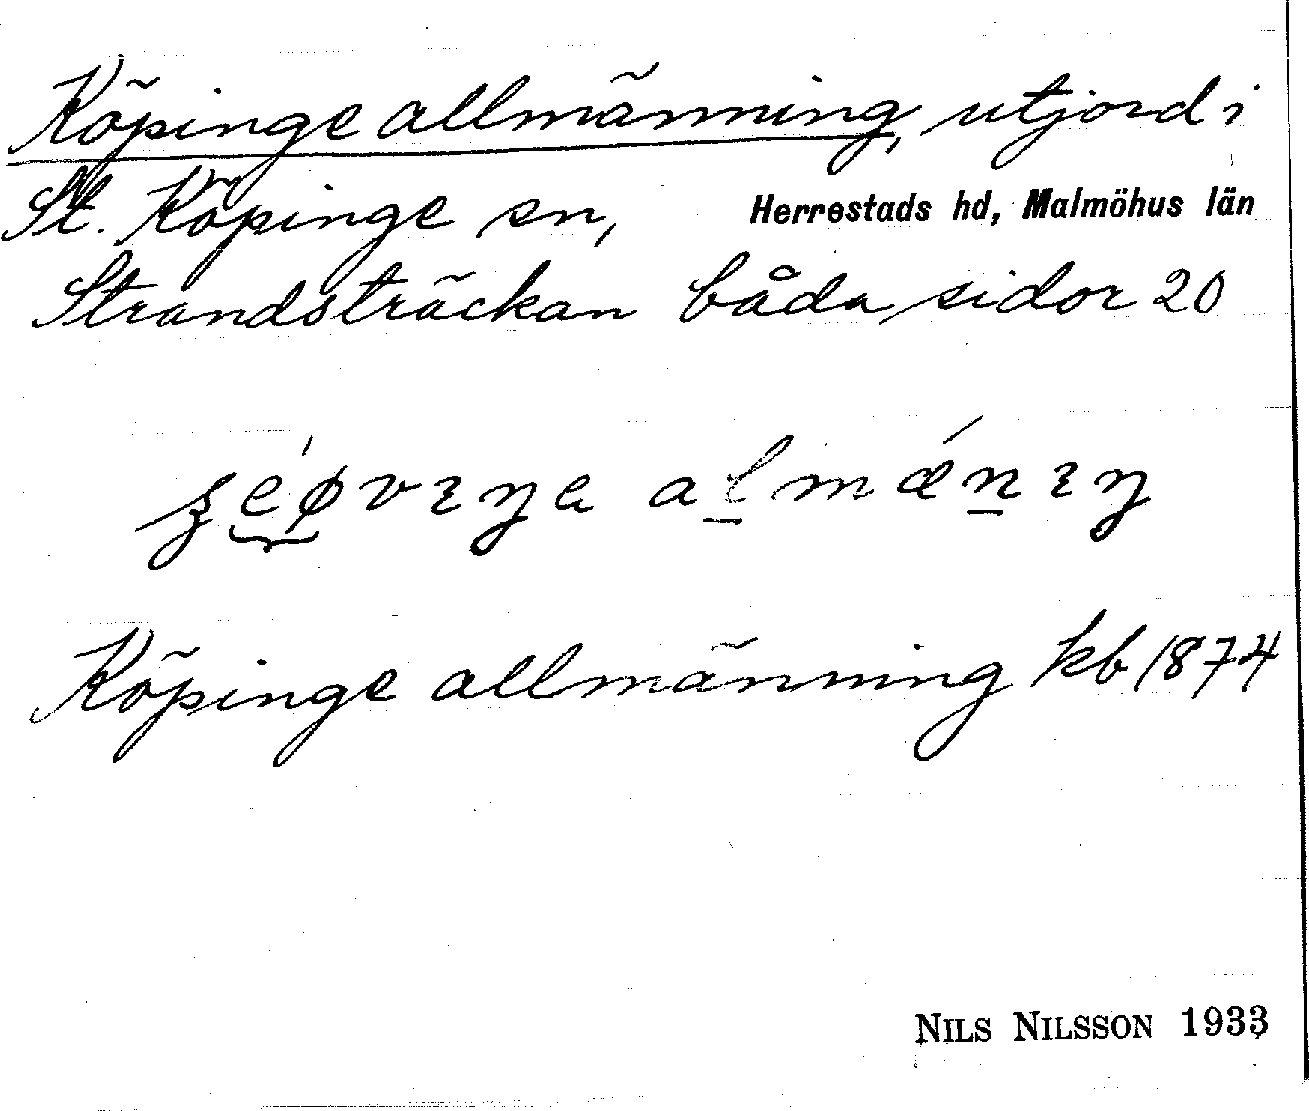 Köpinge allmänning, utjord i
St. Köpinge sn, Herrestads hd, Malmöhus län
Strandsträckan båda sidor 20
Köpinge allmänning kb 1874
NILS NILSSON 1933